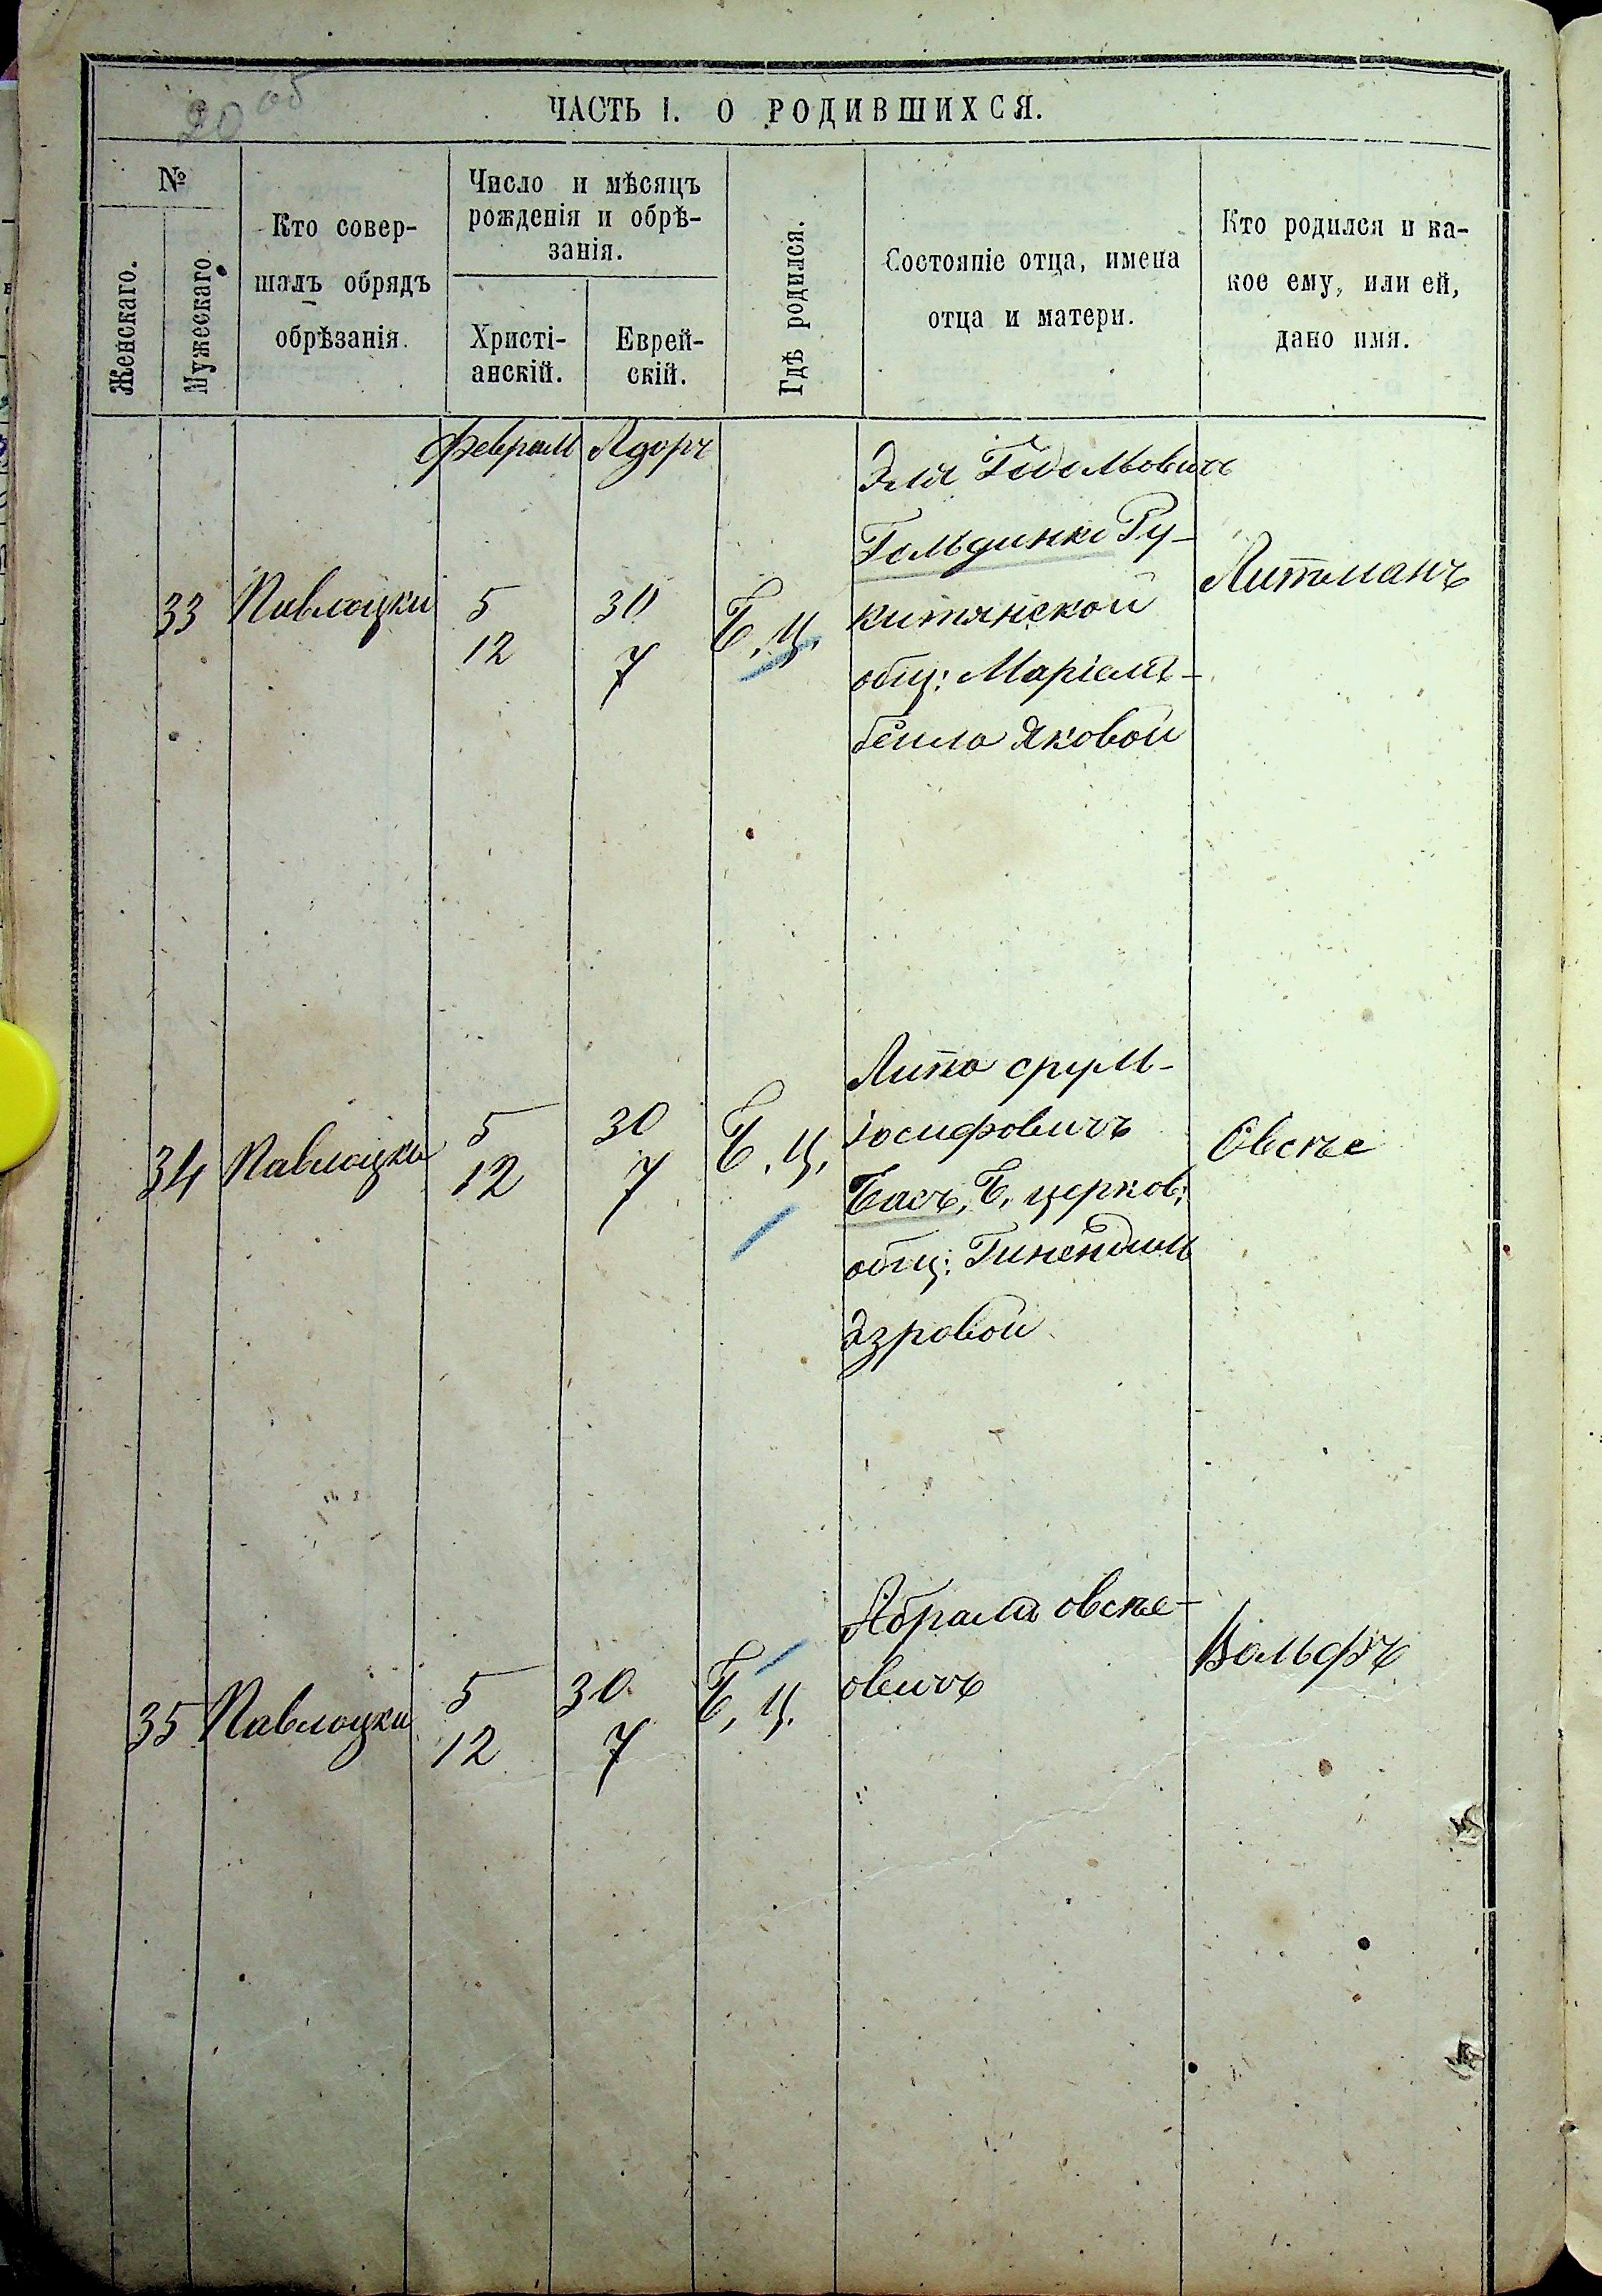 20 об
ЧАСТЬ I. О РОДИВШИХСЯ.
№
Женскаго.
Мужескаго.
Кто совер-
шалъ обрядъ
обрѣзанія.
Число и мѣсяцъ
рожденія и обрѣ-
занія.
Христі-
анскій.
Еврей-
скій.
Гдѣ родился.
Состояніе отца, имена
отца и матери.
Кто родился и ка-
кое ему, или ей,
дано имя.
Февраль Адоръ
33 Павлоцки 5 30 Б. Ц.
12 7
Эля
Гольдинко Ру-
китянской
общ: Маріемъ-
бейла Яковой
Литманъ
34 Павлоцки 5 30 Б. Ц.
12 7
Липа срулъ-
іосифовичъ
Басъ, Б, церков:
общ: Гинендль
Эзровой
Овсѣе
35 Павлоцки 5 30 Б, Ц.
12 7
Абрамъ овсѣе-
овичъ
Вольфъ